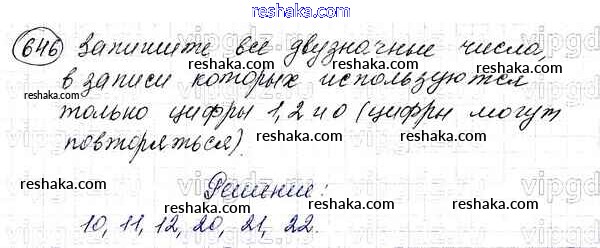 reshaka.com
646 Запишите все двузначные числа,
в записи которых используются
только цифры 1, 2 и 0 (цифры могут
повторяться).
Решение:
10, 11, 12, 20, 21, 22.
reshaka.com reshaka.com reshaka.com
reshaka.com reshaka.com reshaka.com
reshaka.com reshaka.com
reshaka.com
reshaka.com reshaka.com
vipgdz